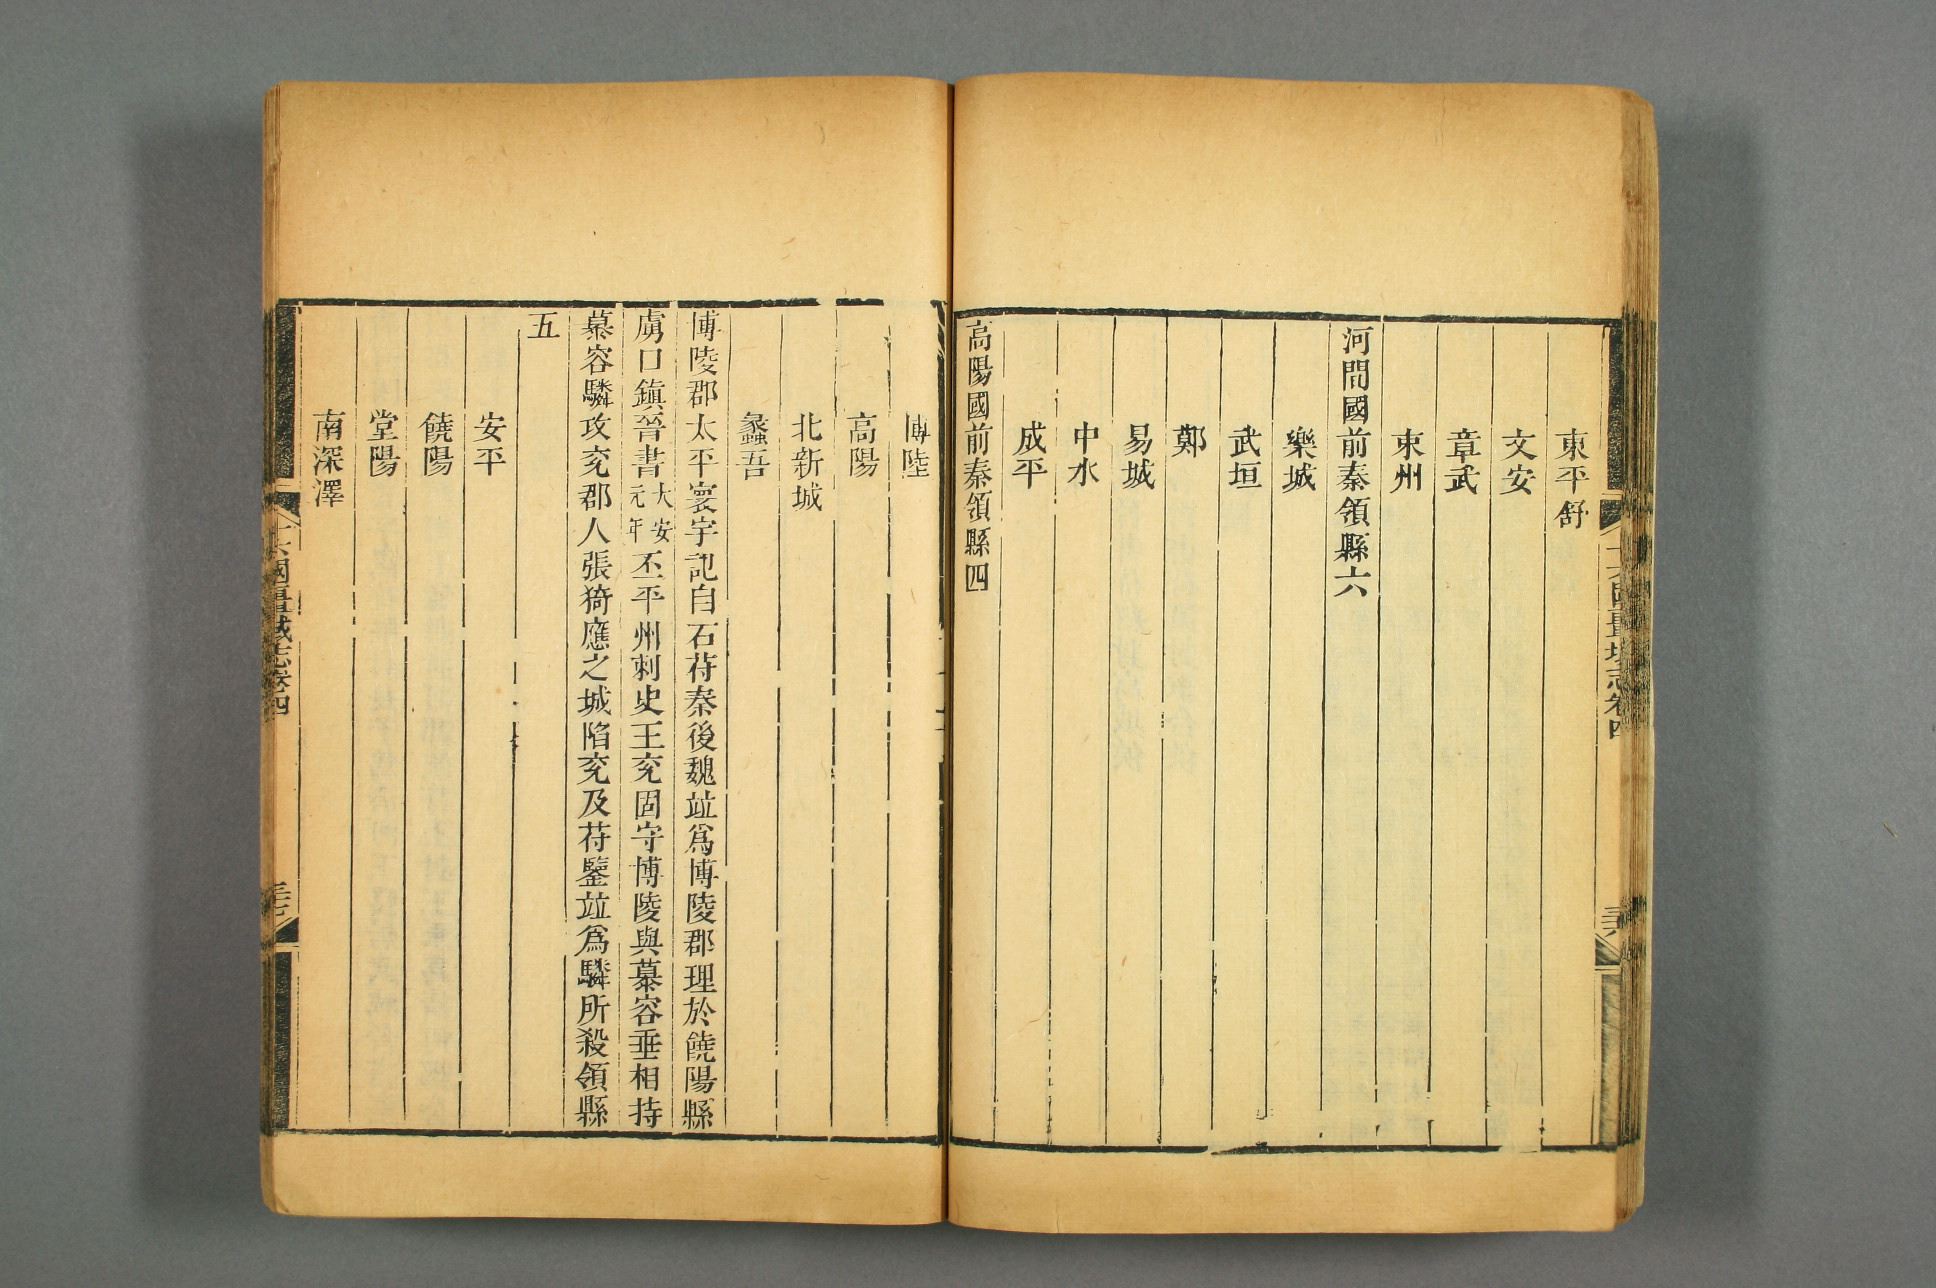 東平舒
文安
章武
束州
河間國前秦領縣六
樂城
武垣
鄚
易城
中水
成平
高陽國前秦領縣四
博陸
高陽
北新城
蠡吾
博陵郡太平寰宇記自石苻秦後魏竝爲博陵郡理於饒陽縣
虜口鎮晉書大安元年丕平州刺史王兖固守博陵與慕容垂相持
慕容驎攻兖郡人張猗應之城陷兖及苻鑒竝爲驎所殺領縣
五
安平
饒陽
堂陽
南深澤
十六國疆域志卷四